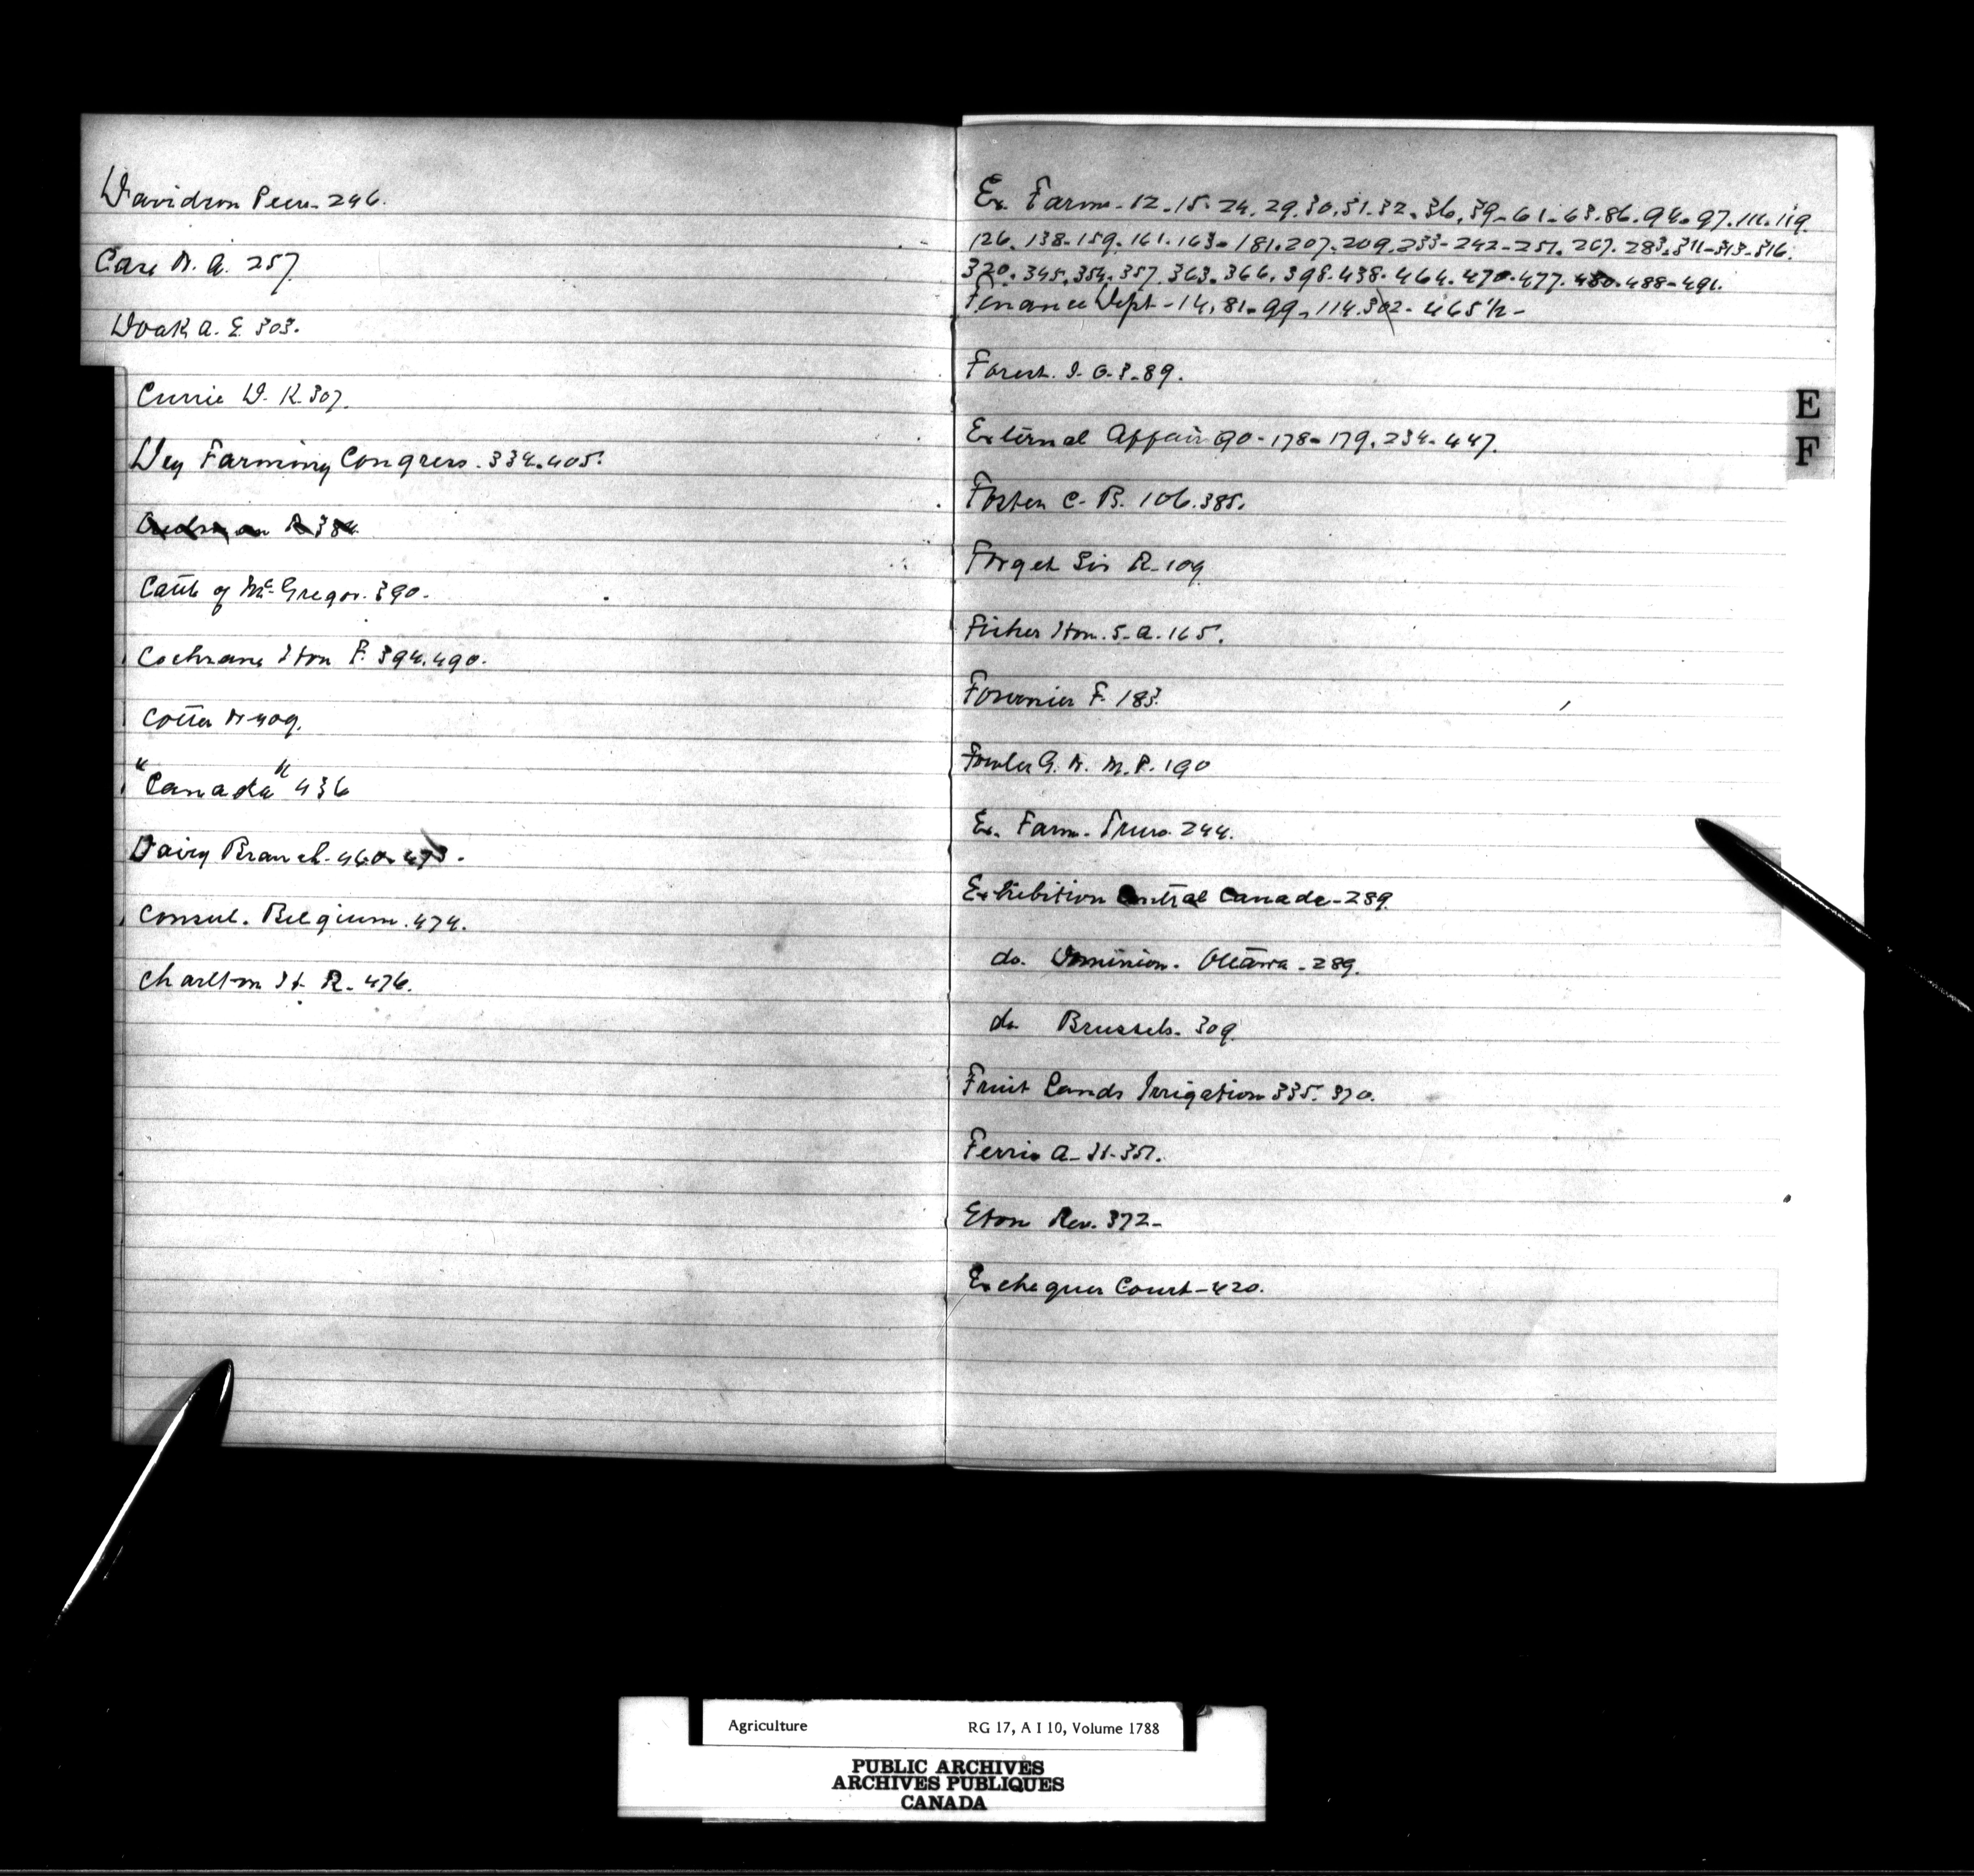 Davidson Peer- 246.
Case N. A. 257
Doak A. E. 303.
Currie D. K. 307.
Dry Farming Congress. 334.405.
R 384
Cattle of McGregor. 390.
Cochrane Hon F. 394.490.
Cotter N-409.
"Canada" 436
Dairy Branch. 460. 473.
Consul. Belgium. 474.
Charlton H. R. 476.
Ex. Farm. 12.15.24.29.30.31.32.36.39-61-63.86.94.97.111.119.
126.138-159.161.163-181.207.209.233-242-251.267.283.311-313-316.
320.345.354.357.363.366.398.438.464.470.477.480.488-491.
Finance Dept - 14.81.99.114.302-465½-
Forest. I. O. F. 89.
External Affair 90-178-179.234-447.
Foster C. B. 106.385.
Forget Sir R. 109
Fisher Hon. S. A. 165.
Fournier F. 183.
Fowler G. W. M. P. 190
Ex. Farm. Truro. 244.
Exhibition Central Canada-289.
do. Dominion. Ottawa-289.
do Brussels. 309.
Fruit Lands Irrigation 335.370.
Ferris A. H. 351.
Eton Rev. 372-
Exchequer Court-420.
E
F
Agriculture RG 17, A I 10, Volume 1788
PUBLIC ARCHIVES
ARCHIVES PUBLIQUES
CANADA